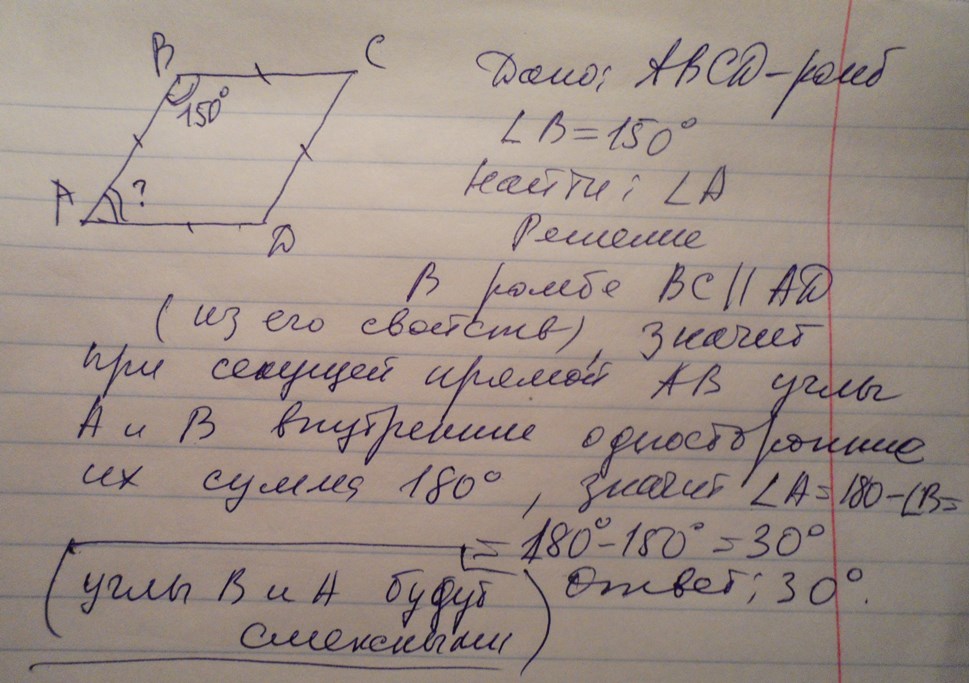 B
C
150°
A
?
D
Дано: ABCD-ромб
∠B=150°
Найти: ∠A
Решение
В ромбе BC||AD
(из его свойств), значит
при секущей прямой AB углы
A и B внутренние односторонние
их сумма 180°, значит ∠A=180-∠B=
=180°-150°=30°
(углы B и A будут
смежными)
Ответ: 30°.